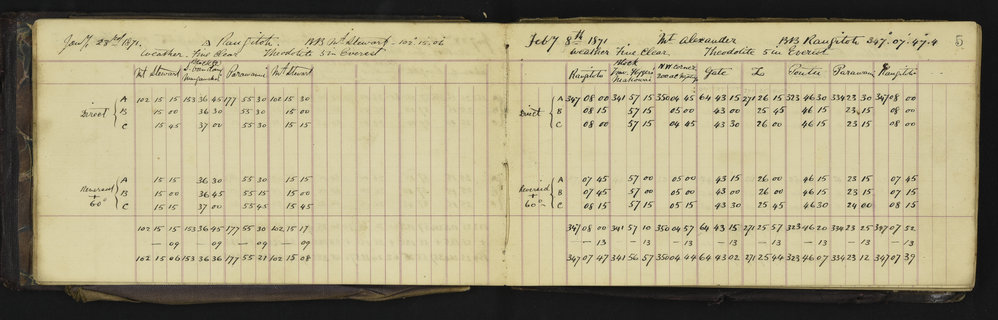 Jany 23rd 1871. @ Rangitoto. BRB Mt Stewart - 102°.15.'06
Weather. Fine Clear Theodolite 5 in Everest
Mt Stewart Parawanui Mt Stewart
Direct A 102 15 15 153 36 45 177 55 30 102 15 30
B 15 00 36 30 55 30 15 00
C 15 45 37 00 55 30 15 15
Reversed + 60° A 15 15 36 30 55 30 15 15
B 15 00 36 45 55 15 15 00
C 15 15 37 00 55 45 15 45
102 15 15 153 36 45 177 55 30 102 15 17
— 09 — 09 — 09 — 09
102 15 06 153 36 36 177 55 21 102 15 08
Feby 8th 1871 Mt Alexander BRB Rangitoto 347°.07'.47".4 5
Weather Fine Clear. Theodolite 5 in Everest
Block NW Corner
Rangitoto 200 ac Gate Z Poutu Parawanui Rangitoto
Direct A 347 08 00 341 57 15 350 04 45 64 43 15 271 26 15 323 46 30 334 23 30 347 08 00
B 08 15 57 15 05 00 43 00 25 45 46 15 23 15 08 00
C 08 00 57 15 04 45 43 30 26 00 46 15 23 15 08 00
Reversed + 60° A 07 45 57 00 05 00 43 15 26 00 46 15 23 15 07 45
B 07 45 57 00 05 00 43 00 26 00 46 15 23 15 07 15
C 08 15 57 15 05 15 43 30 25 45 46 30 24 00 08 15
347 08 00 341 57 10 350 04 57 64 43 15 271 25 57 323 46 20 334 23 25 347 07 52
— 13 — 13 — 13 — 13 — 13 — 13 — 13 — 13
347 07 47 341 56 57 350 04 44 64 43 02 271 25 44 323 46 07 334 23 12 347 07 39